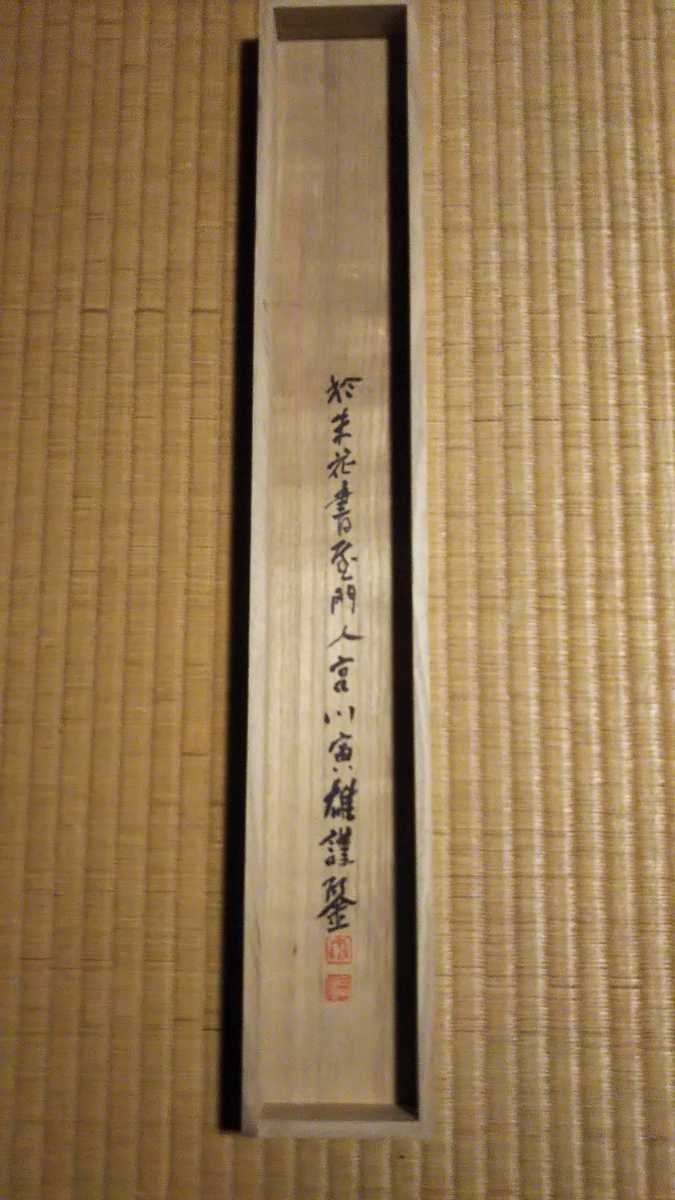 於朱花書屋門人宮川寅雄謹鑒